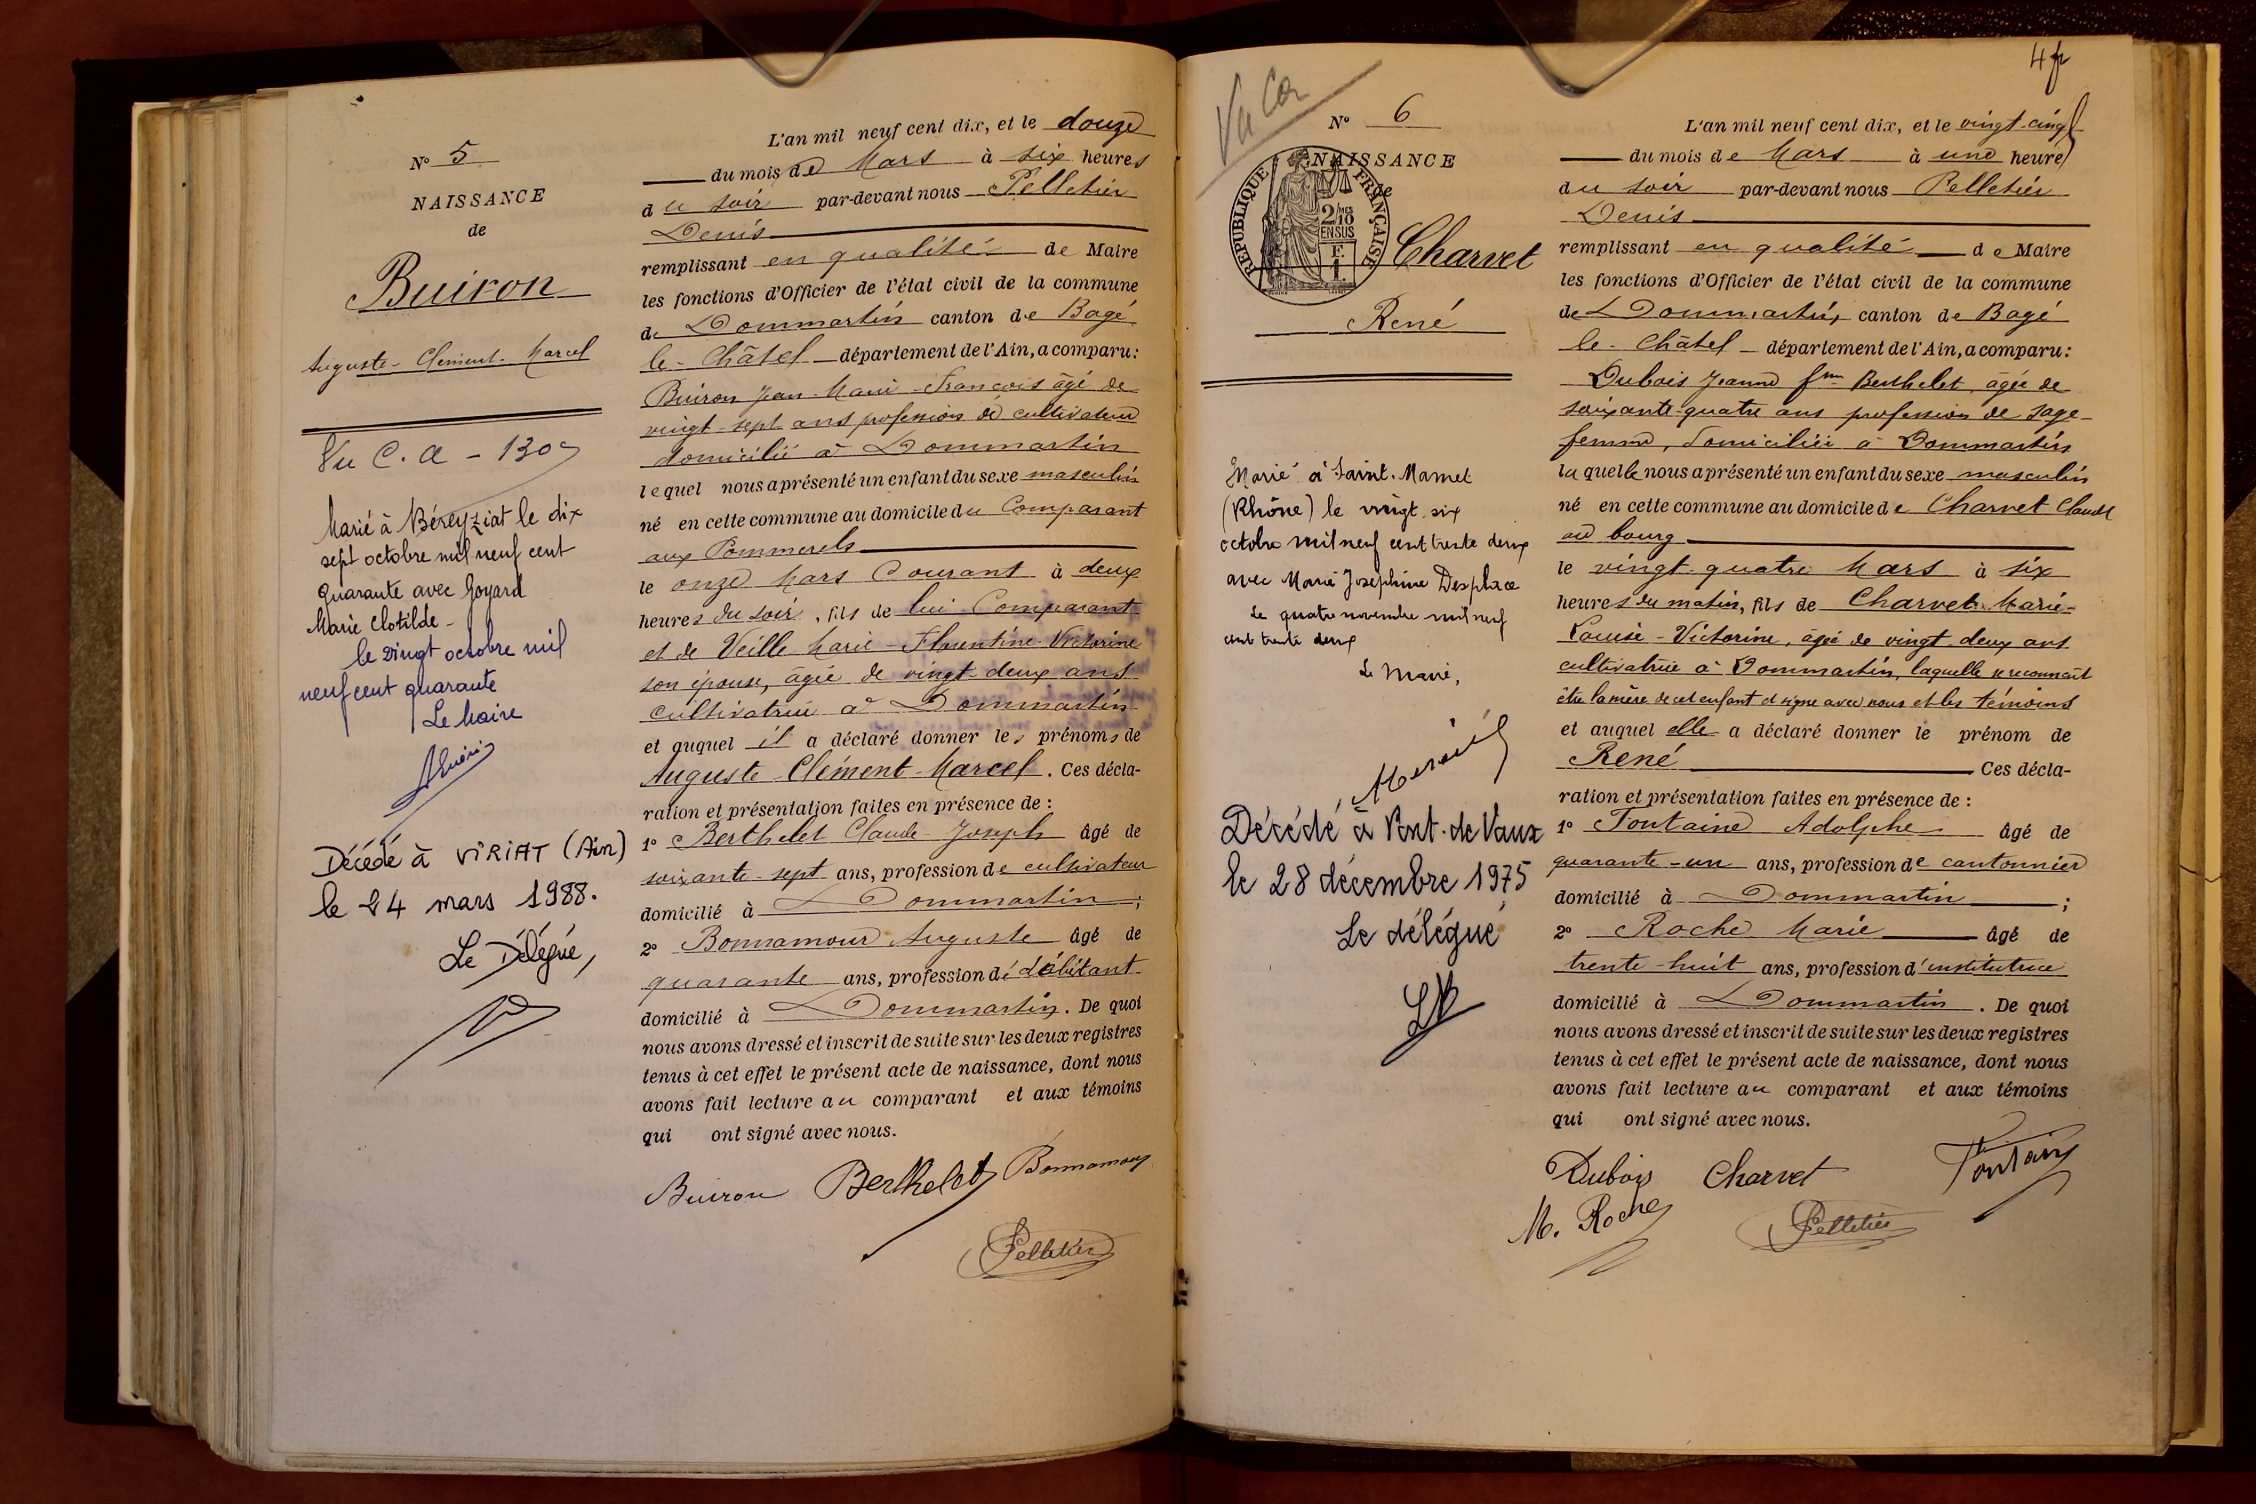 N° 5
NAISSANCE
de
Buiron
Auguste-Clément-Marcel
Vu C. a - 130
Marié à Béreyziat le dix
sept octobre mil neuf cent
quarante avec Goyard
Marie Clotilde -
le vingt octobre mil
neuf cent quarante
Le Maire
Décédé à VIRIAT (Ain)
le 24 mars 1988.
Le Délégué,
L'an mil neuf cent dix, et le douze
du mois de Mars à six heures
du soir par-devant nous Pelletier
Denis
remplissant en qualité de Maire
les fonctions d'Officier de l'état civil de la commune
de Dommartin canton de Bagé
le-Châtel département de l'Ain, a comparu:
Buiron Jean-Marie-François âgé de
vingt-sept ans profession de cultivateur
domicilié à Dommartin
lequel nous a présenté un enfant du sexe masculin
né en cette commune au domicile du Comparant
aux Pommerels
le onze Mars Courant à deux
heures du soir, fils de lui Comparant
et de Veille Marie-Florentine-Victorine
son épouse, âgée de vingt-deux ans
cultivatrice à Dommartin
et auquel il a déclaré donner les prénoms de
Auguste-Clément-Marcel. Ces décla-
ration et présentation faites en présence de :
1° Berthelet Claude-Joseph âgé de
soixante-sept ans, profession de cultivateur
domicilié à Dommartin ;
2° Bonnamour Auguste âgé de
quarante ans, profession de débitant
domicilié à Dommartin. De quoi
nous avons dressé et inscrit de suite sur les deux registres
tenus à cet effet le présent acte de naissance, dont nous
avons fait lecture au comparant et aux témoins
qui ont signé avec nous.
Buiron Berthelet Bonnamour
Pelletier
4 fr
Vu Ca
N° 6
NAISSANCE
de
REPUBLIQUE FRANÇAISE
2/10 MES
EN SUS
F.
1
Charvet
René
Marié à Saint-Mamet
(Rhône) le vingt six
octobre mil neuf cent trente deux
avec Marie Josephine Desplace
Le quatre novembre mil neuf
cent trente deux
Le Maire,
Décédé à Pont-de-Vaux
le 28 décembre 1975
Le délégué
L'an mil neuf cent dix, et le vingt-cinq
du mois de Mars à une heure
du soir par-devant nous Pelletier
Denis
remplissant en qualité de Maire
les fonctions d'Officier de l'état civil de la commune
de Dommartin canton de Bagé
le-Châtel département de l'Ain, a comparu:
Dubois Jeanne fme Berthelet, âgée de
soixante-quatre ans profession de sage-
femme, domiciliée à Dommartin
laquelle nous a présenté un enfant du sexe masculin
né en cette commune au domicile de Charvet Claude
au bourg
le vingt-quatre Mars à six
heures du matin, fils de Charvet Marie-
Louise-Victorine, âgée de vingt-deux ans
cultivatrice à Dommartin, laquelle se reconnaît
être la mère de cet enfant et signe avec nous et les témoins
et auquel elle a déclaré donner le prénom de
René Ces décla-
ration et présentation faites en présence de :
1° Fontaine Adolphe âgé de
quarante-un ans, profession de cantonnier
domicilié à Dommartin ;
2° Roche Marie âgé de
trente-huit ans, profession d'institutrice
domicilié à Dommartin. De quoi
nous avons dressé et inscrit de suite sur les deux registres
tenus à cet effet le présent acte de naissance, dont nous
avons fait lecture au comparant et aux témoins
qui ont signé avec nous.
Dubois Charvet Fontaine
M. Roche Pelletier